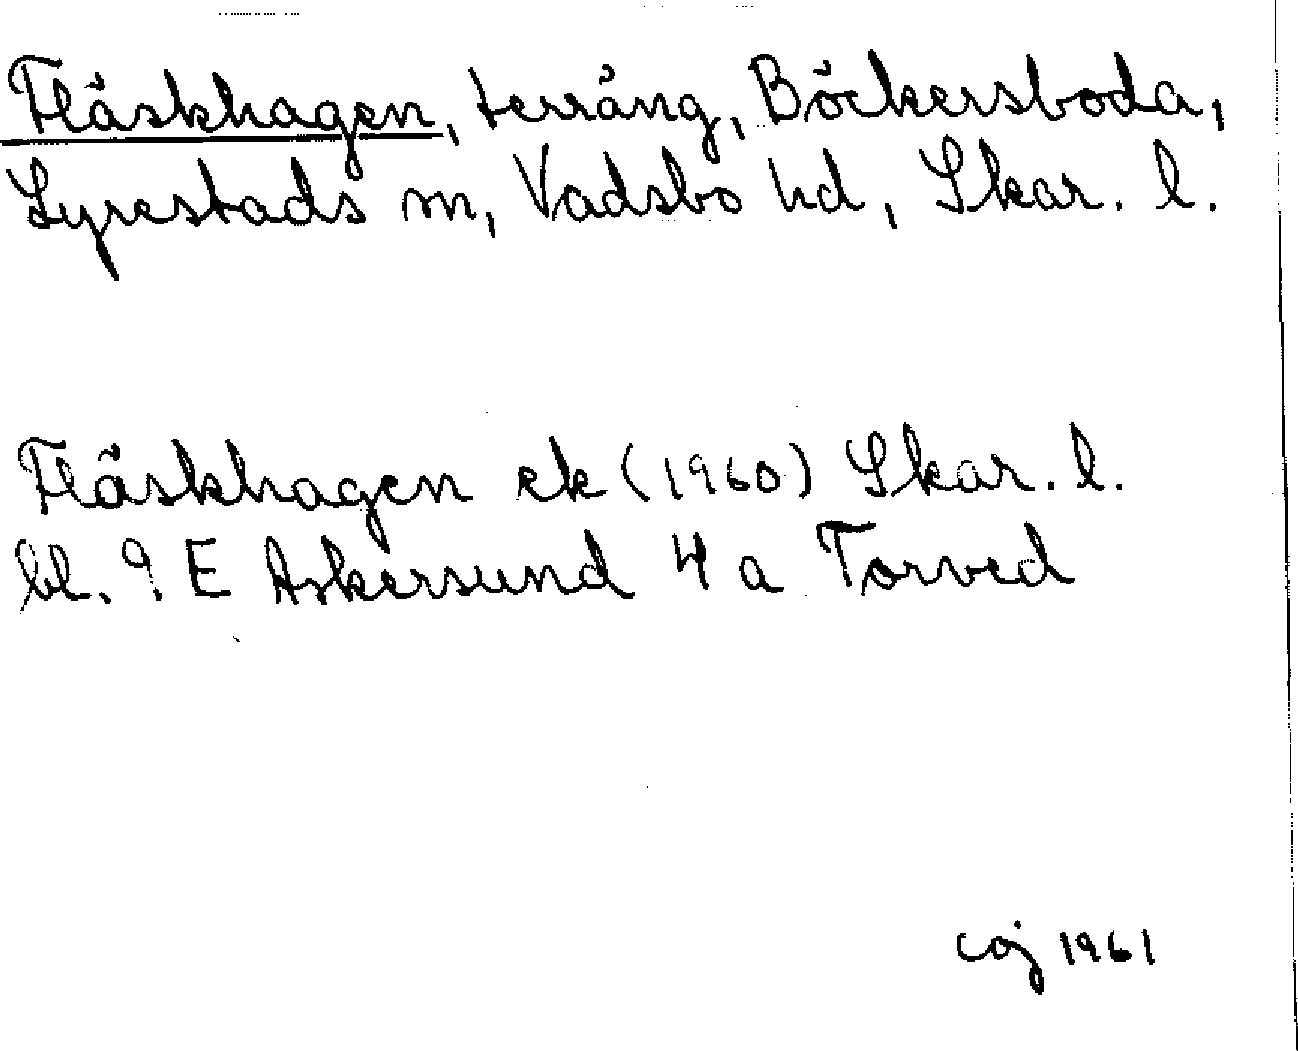 Fläskhagen, terräng, Böckersboda,
Lyrestads sn, Vadsbo hd, Skar. l.
Fläskhagen ek (1960) Skar. l.
bl. 9 E Askersund 4 a Torved
coj 1961